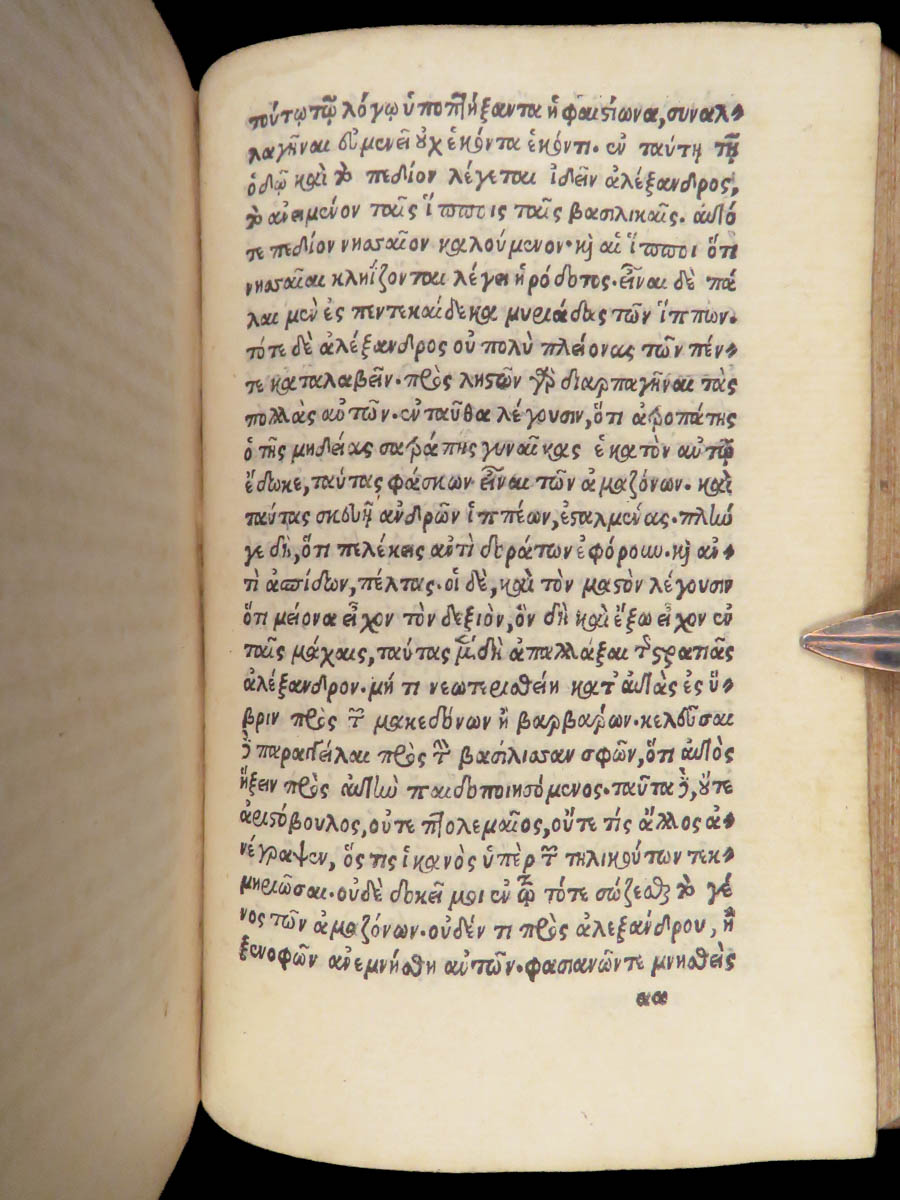 τούτῳ τῷ λόγῳ ὑποπτήξαντα ἡφαιστίωνα, συναλ-
λαγῆναι εὐμενεῖ οὐχ ἑκόντα ἑκόντι. ἐν ταύτῃ τῇ
ὁδῷ καὶ τὸ πεδίον λέγεται ἰδεῖν ἀλέξανδρος,
τὸ ἀνειμένον ταῖς ἵπποις ταῖς βασιλικαῖς. αὐτό
τε πεδίον νησαῖον καλούμενον. καὶ αἱ ἵπποι ὅτι
νησαῖαι κληΐζονται λέγει ἡρόδοτος. εἶναι δὲ πά
λαι μὲν ἐς πεντεκαίδεκα μυριάδας τῶν ἵππων.
τότε δὲ ἀλέξανδρος οὐ πολὺ πλείονας τῶν πέν-
τε καταλαβεῖν. πρὸς λῃστῶν γὰρ διαρπαγῆναι τὰς
πολλὰς αὐτῶν. ἐνταῦθα λέγουσιν, ὅτι ἀτροπάτης
ὁ τῆς μηδείας σατράπης γυναῖκας ἑκατὸν αὐτῷ
ἔδωκε, ταύτας φάσκων εἶναι τῶν ἀμαζόνων. καὶ
ταύτας σκευῇ ἀνδρῶν ἱππέων, ἐσταλμένας. πλήν
γε δὴ, ὅτι πελέκεις ἀντὶ δοράτων ἐφόρουν. καὶ ἀν-
τὶ ἀσπίδων, πέλτας. οἱ δὲ, καὶ τὸν μαστὸν λέγουσιν
ὅτι μείονα εἶχον τὸν δεξιὸν, ὃν δὴ καὶ ἔξω εἶχον ἐν
ταῖς μάχαις, ταύτας μὲν δὴ ἀπαλλάξαι τῆς στρατιᾶς
ἀλέξανδρον. μή τι νεωτερισθείη κατ' αὐτὰς ἐς ὕ-
βριν πρὸς τῶν μακεδόνων ἢ βαρβάρων. κελεῦσαι
δὲ παραγγεῖλαι πρὸς τὴν βασίλισσαν σφῶν, ὅτι αὐτὸς
ἥξειν πρὸς αὐτὴν παιδοποιησόμενος. ταῦτα δὲ, οὔτε
ἀριστόβουλος, οὔτε πτολεμαῖος, οὔτε τίς ἄλλος ἀ-
νέγραψεν, ὅς τις ἱκανὸς ὑπὲρ τῶν τηλικούτων τεκ-
μηριῶσαι. οὐδὲ δοκεῖ μοι ἐν τῷ τότε σώζεσθαι τὸ γέ
νος τῶν ἀμαζόνων. οὐδέν τι πρὸς ἀλεξάνδρου, ἢ
ξενοφῶν ἀνεμνήσθη αὐτῶν. φασιανῶντε μνησθεὶς
αα